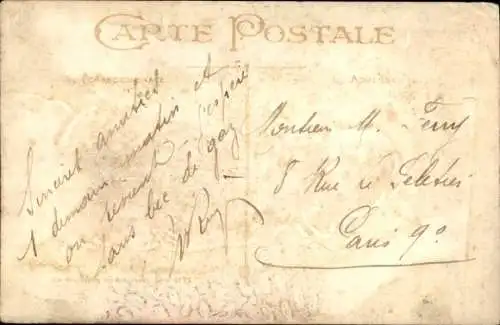 CARTE POSTALE
Sincères amitiés
à demain matin et
on revient j'espère
sans bec de gaz
Monsieur M. Ferry
8 Rue Le Peletier
Paris 9e